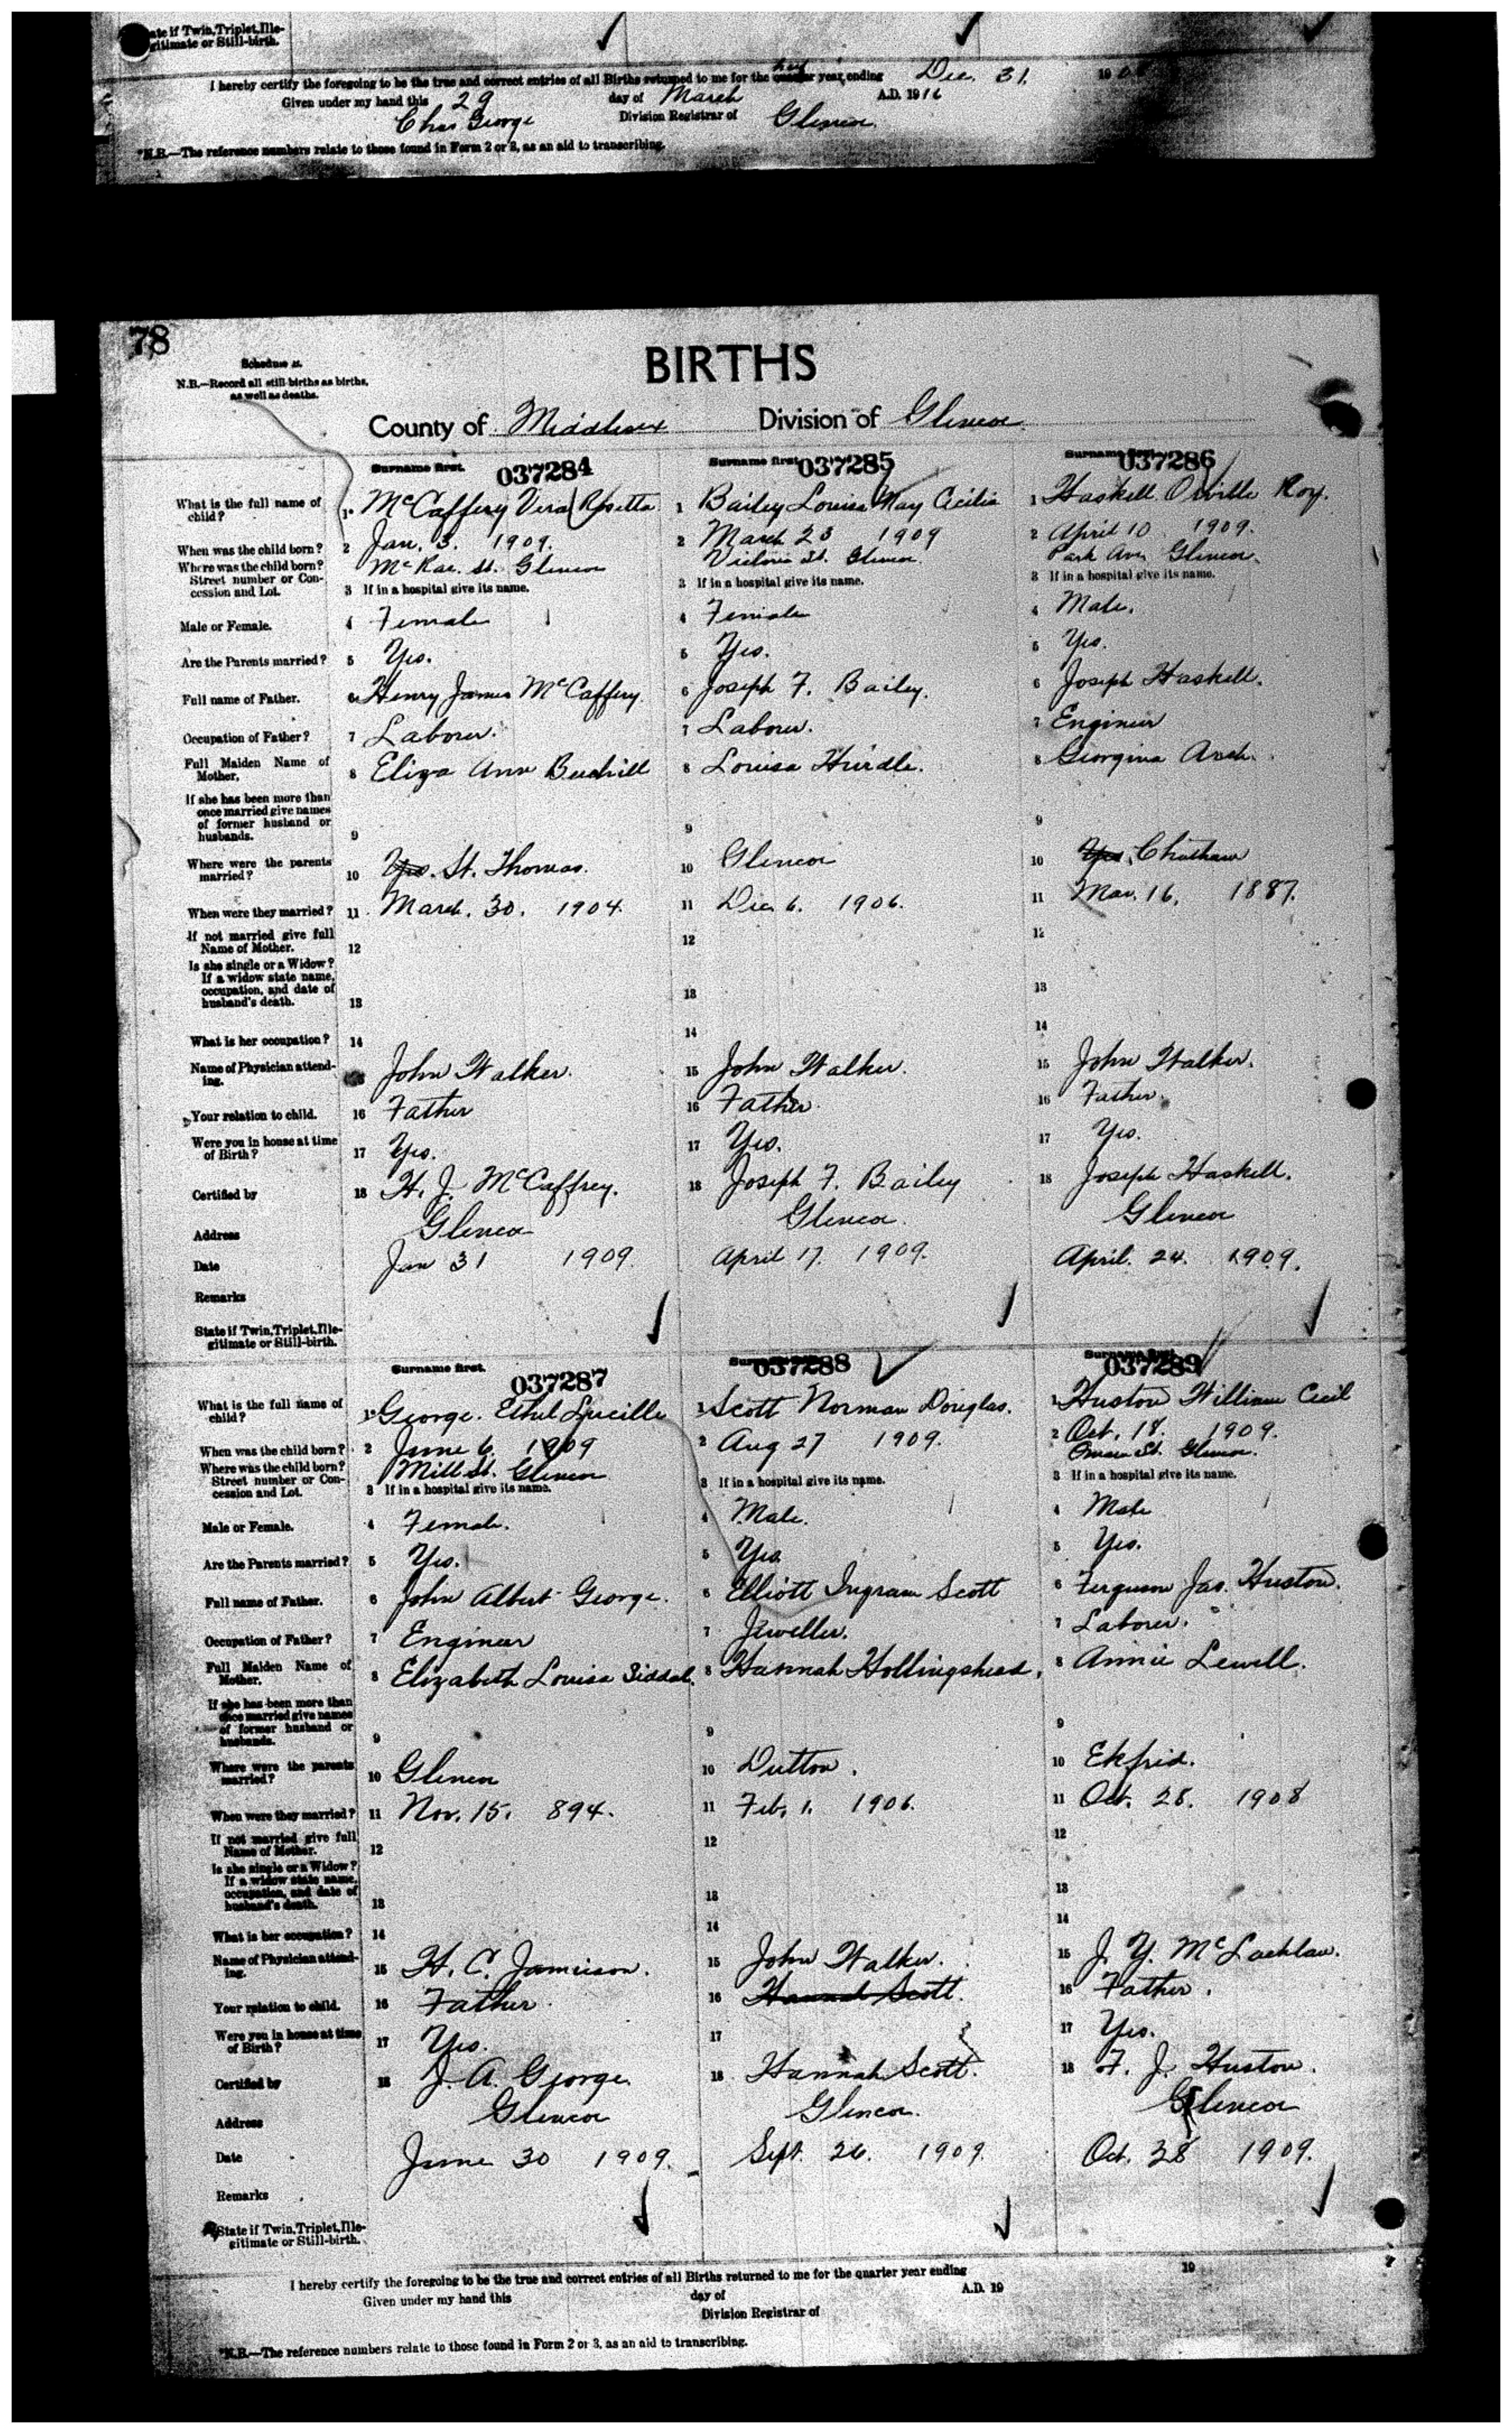 State if Twin, Triplet, Ille-
gitimate or Still-birth.
I hereby certify the foregoing to be the true and correct entries of all Births returned to me for the year ending Dec. 31. 190
Given under my hand this 29 day of March A.D. 1916
Chas George Division Registrar of Glencoe
*N.B.—The reference numbers relate to those found in Form 2 or 3, as an aid to transcribing.
78
BIRTHS
N.B.—Record all still births as births,
as well as deaths.
County of Middlesex Division of Glencoe
Surname first. 037284 Surname first 037285 Surname first 037286
What is the full name of child? 1 McCaffery Vera Rosetta 1 Bailey Louisa May Cicilia 1 Haskell Orville Roy.
When was the child born? 2 Jan. 3. 1909. 2 March 23 1909 2 April 10 1909.
Where was the child born? McRae. St. Glencoe Victoria St. Glencoe. Park Ave. Glencoe.
Street number or Concession and Lot. 3 If in a hospital give its name. 3 If in a hospital give its name. 3 If in a hospital give its name.
Male or Female. 4 Female 4 Female 4 Male.
Are the Parents married? 5 Yes. 5 Yes. 5 Yes.
Full name of Father. 6 Henry James McCaffery. 6 Joseph F. Bailey. 6 Joseph Haskell.
Occupation of Father? 7 Laborer. 7 Laborer. 7 Engineer
Full Maiden Name of Mother. 8 Eliza Ann 8 Louisa Hurdle. 8 Georgina
If she has been more than once married give names of former husband or husbands. 9 9 9
Where were the parents married? 10 Yes. St. Thomas. 10 Glencoe 10 Yes. Chatham
When were they married? 11 March. 30. 1904. 11 Dec. 6. 1906. 11 Mar. 16, 1887.
If not married give full Name of Mother. 12 12 12
Is she single or a Widow? If a widow state name, occupation, and date of husband's death. 13 13 13
What is her occupation? 14 14 14
Name of Physician attending. John Walker. 15 John Walker. 15 John Walker.
Your relation to child. 16 Father 16 Father. 16 Father.
Were you in house at time of Birth? 17 Yes. 17 Yes. 17 Yes.
Certified by 18 H. J. McCaffrey. 18 Joseph F. Bailey 18 Joseph Haskell.
Address Glencoe Glencoe. Glencoe
Date Jan 31 1909. April 17. 1909. April. 24. 1909.
Remarks
State if Twin, Triplet, Ille-
gitimate or Still-birth.
Surname first. 037287 037288 037289
What is the full name of child? 1 George. Ethel Lucille 1 Scott Norman Douglas. 1 Huston William Cecil
When was the child born? 2 June 6. 1909 2 Aug 27 1909. 2 Oct. 18. 1909.
Where was the child born? Mill St. Glencoe St. Glencoe.
Street number or Concession and Lot. 3 If in a hospital give its name. 3 If in a hospital give its name. 3 If in a hospital give its name.
Male or Female. 4 Female. 4 Male. 4 Male
Are the Parents married? 5 Yes. 5 Yes 5 Yes.
Full name of Father. 6 John Albert George. 6 Elliott Ingram Scott 6 Ferguson Jas. Huston.
Occupation of Father? 7 Engineer 7 Jeweller. 7 Laborer.
Full Maiden Name of Mother. 8 Elizabeth Louisa Siddall. 8 Hannah Hollingshead. 8 Annie Lewell.
If she has been more than once married give names of former husband or husbands. 9 9 9
Where were the parents married? 10 Glencoe 10 Dutton. 10 Ekfrid.
When were they married? 11 Nov. 15. 894. 11 Feb. 1. 1906. 11 Oct. 28. 1908
If not married give full Name of Mother. 12 12 12
Is she single or a Widow? If a widow state name, occupation, and date of husband's death. 13 13 13
What is her occupation? 14 14 14
Name of Physician attending. 15 H. C. Jamieson. 15 John Walker. 15 J. Y. McLachlan.
Your relation to child. 16 Father. 16 Hannah Scott. 16 Father.
Were you in house at time of Birth? 17 Yes. 17 17 Yes.
Certified by 18 J. A. George. 18 Hannah Scott. 18 F. J. Huston.
Address Glencoe Glencoe. Glencoe
Date June 30 1909. Sept. 26. 1909. Oct. 28 1909.
Remarks
State if Twin, Triplet, Ille-
gitimate or Still-birth.
I hereby certify the foregoing to be the true and correct entries of all Births returned to me for the quarter year ending 19
Given under my hand this day of A.D. 19
Division Registrar of
*N.B.—The reference numbers relate to those found in Form 2 or 3, as an aid to transcribing.